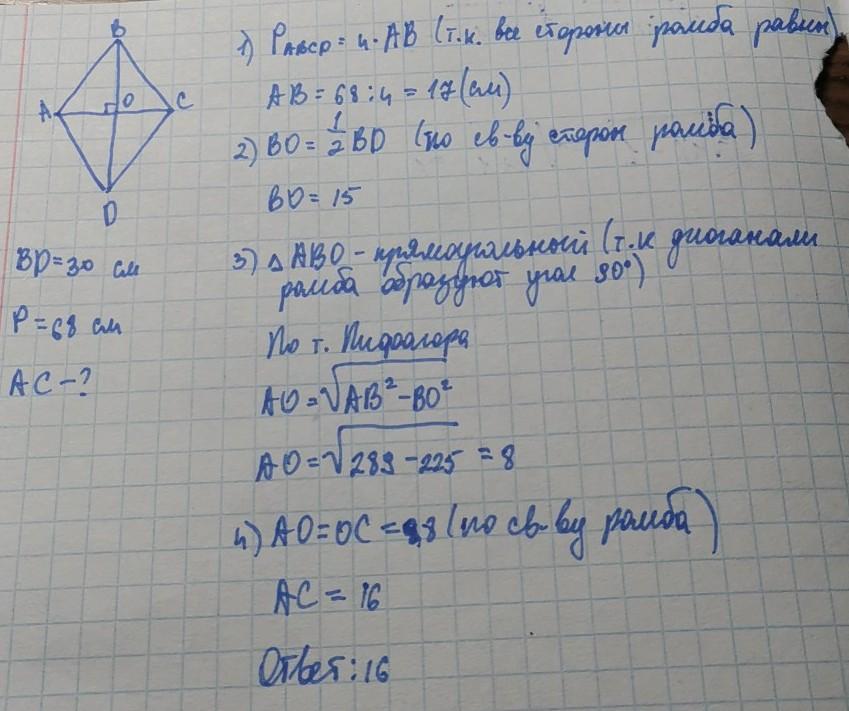 B
A
O
C
D
BD=30 см
P=68 см
AC-?
1) PABCD = 4·AB (т.к. все стороны ромба равны)
AB = 68:4 = 17(см)
2) BO = 1/2 BD (по св-ву сторон ромба)
BO = 15
3) △ABO - прямоугольный (т.к диоганали
ромба образуют угол 90°)
По т. Пифоагора
AO=√AB²-BO²
AO=√289-225 = 8
4) AO=OC=8 (по св-ву ромба)
AC = 16
Ответ: 16